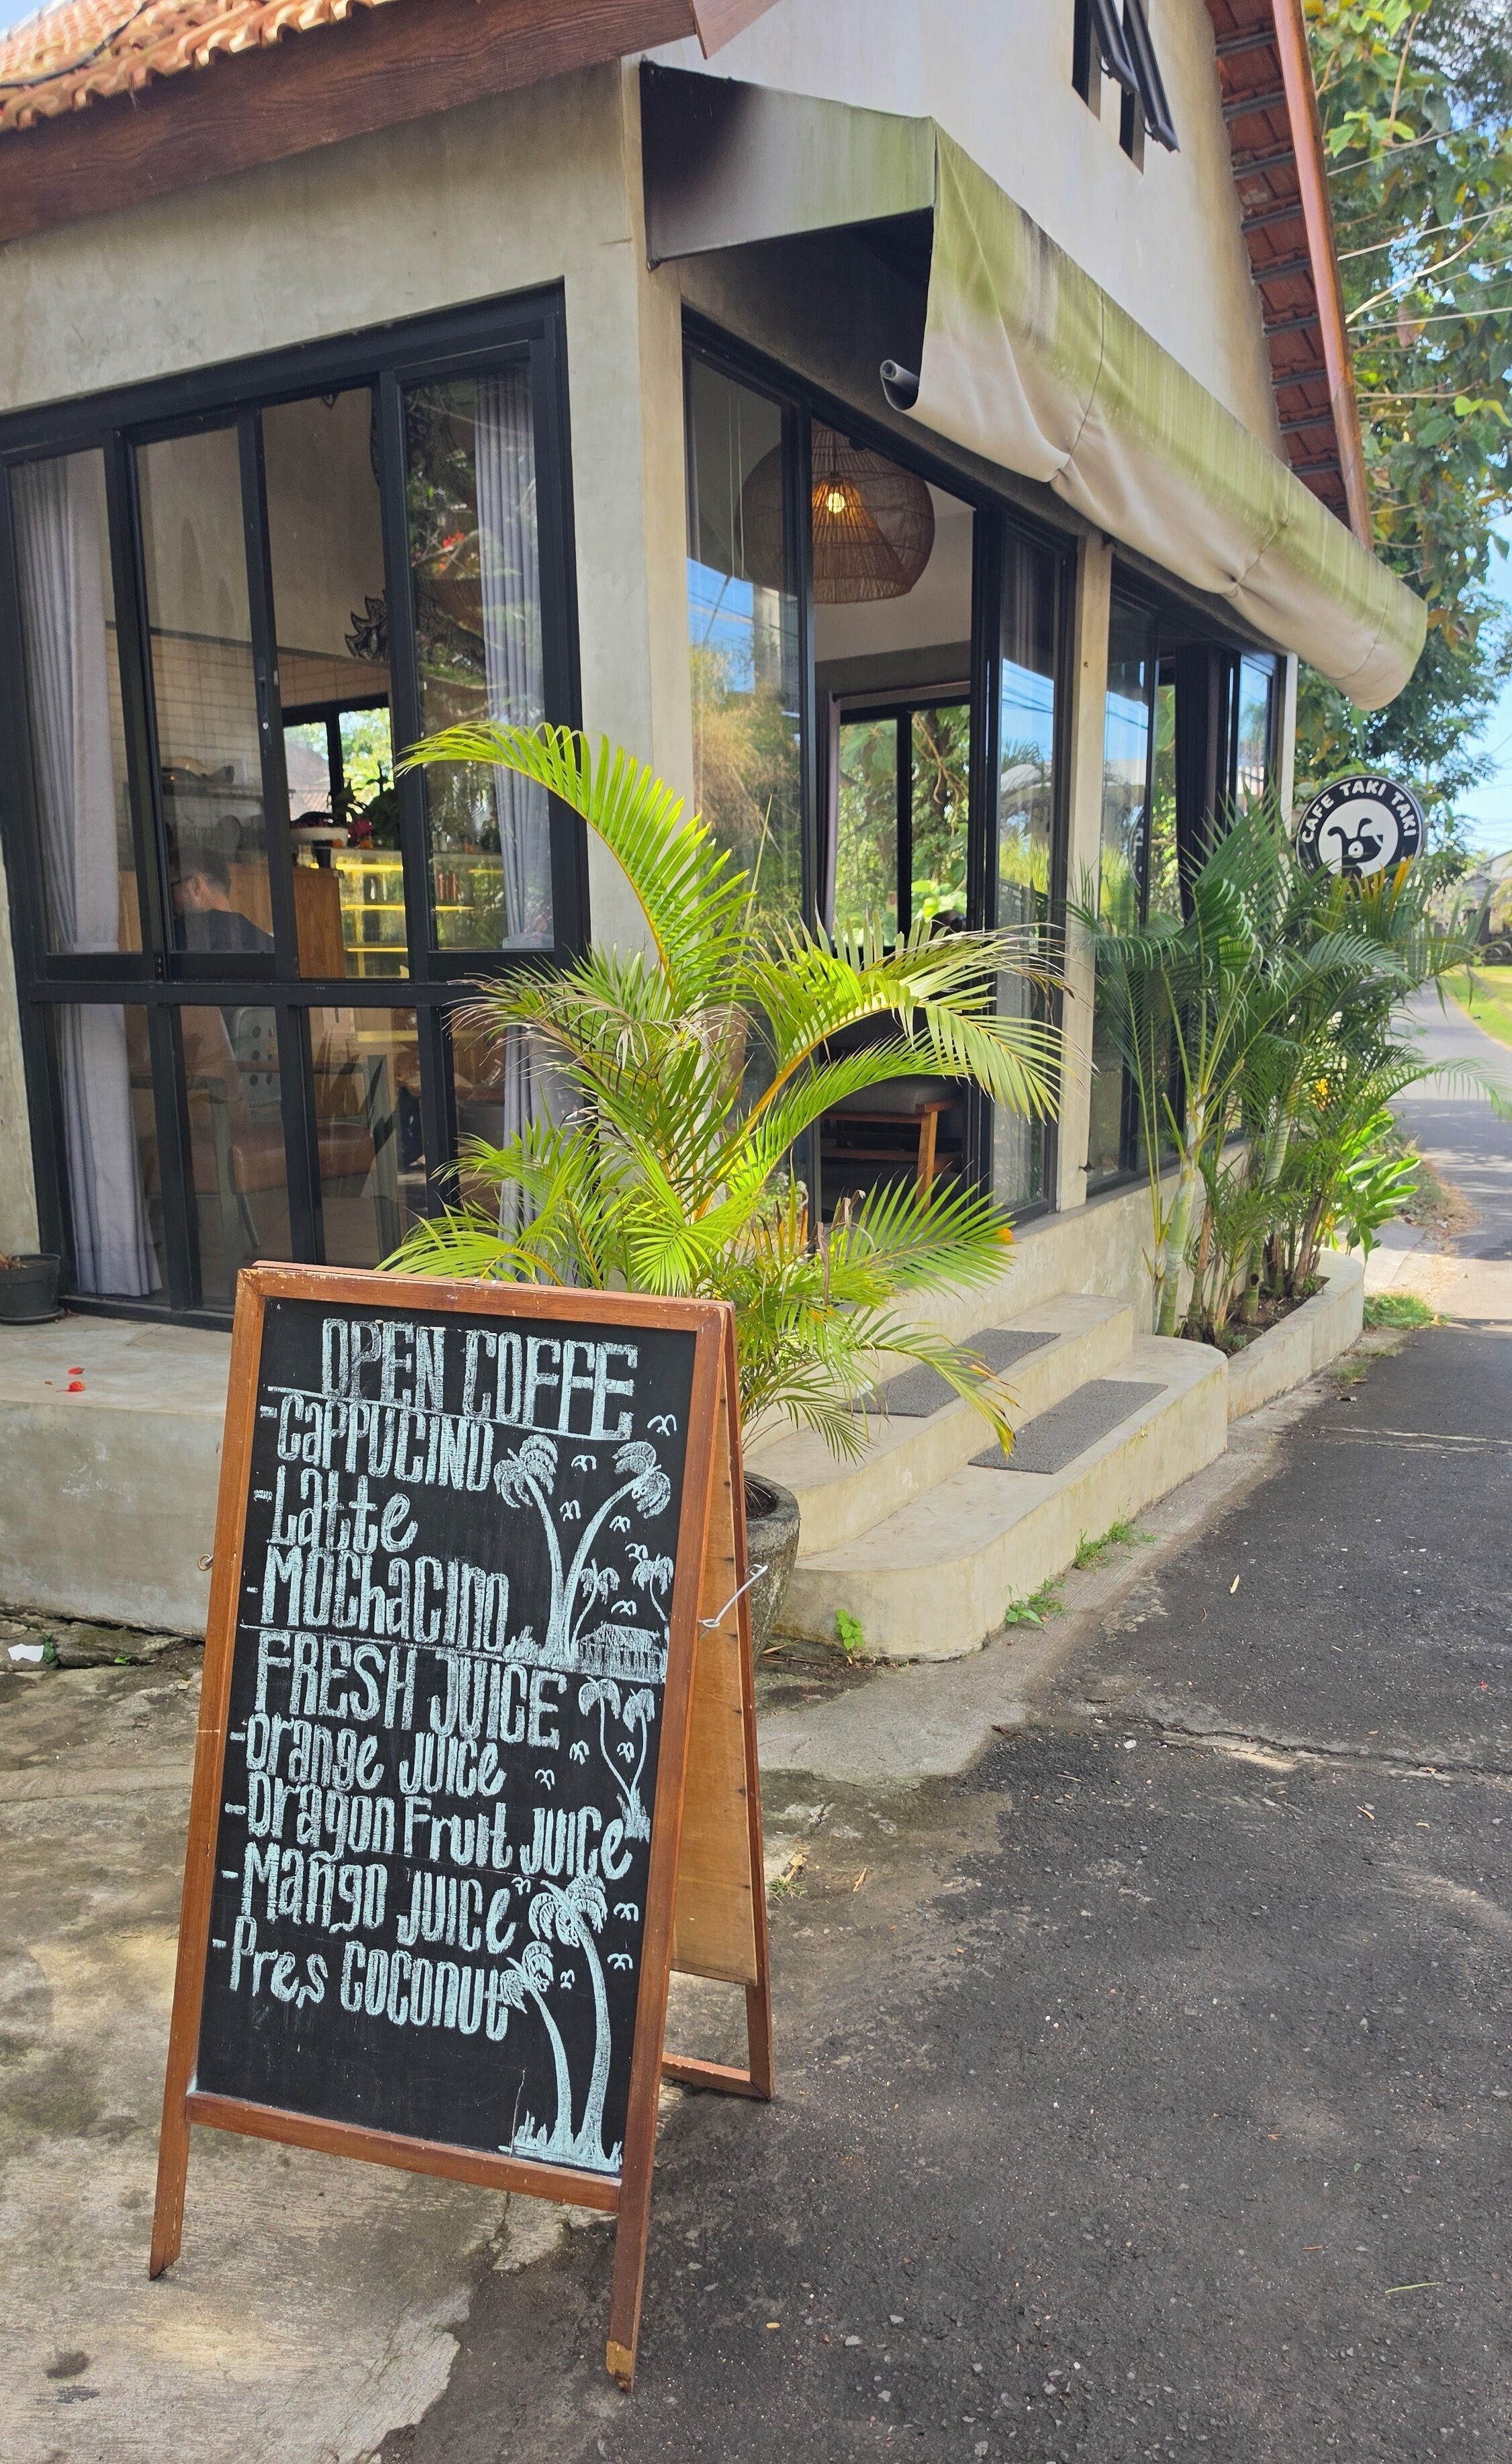 CAFE TAKI TAKI
OPEN COFFE
-CAPPUCINO
-Latte
-MOChaCINO
FRESH JUICE
-Orange JUICE
-Dragon Fruit JUICE
-Mango JUICE
-Pres COCONUT